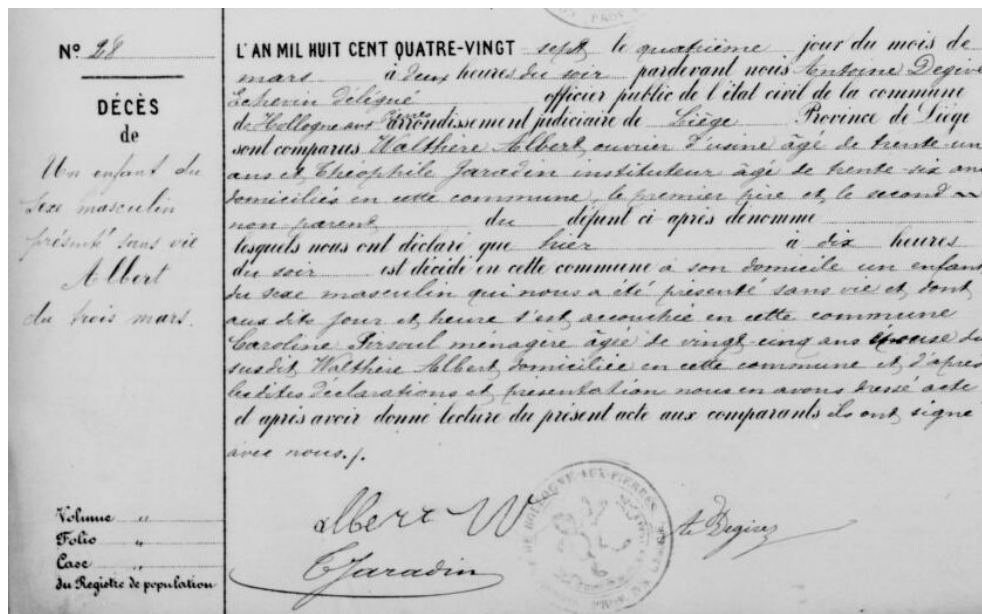 N° 28
DÉCÈS
de
Un enfant du
sexe masculin
présenté sans vie
Albert
du trois mars.
Volume "
Folio "
Case "
du Registre de population
L'AN MIL HUIT CENT QUATRE-VINGT sept, le quatrième jour du mois de
mars à deux heures du soir pardevant nous Antoine Degive
Echevin délégué officier public de l'état civil de la commune
de Hollogne aux Pierres arrondissement judiciaire de Liège Province de Liége
sont comparus Walthère Albert, ouvrier d'usine âgé de trente-un
ans et Théophile Jaradin instituteur âgé de trente-six ans
domiciliés en cette commune, le premier père et le second
non parent du défunt ci après dénommé
lesquels nous ont déclaré que hier à dix heures
du soir est décédé en cette commune à son domicile un enfant
du sexe masculin qui nous a été présenté sans vie et dont
aux dits jour et heure s'est accouchée en cette commune
Caroline Persoul ménagère âgée de vingt-cinq ans épouse du
susdit Walthère Albert domiciliée en cette commune et d'après
lesdites déclarations et présentation nous en avons dressé acte
et après avoir donné lecture du présent acte aux comparants ils ont signé
avec nous./.
Albert W
A Degive
T Jaradin
HOLLOGNE-AUX-PIERRES